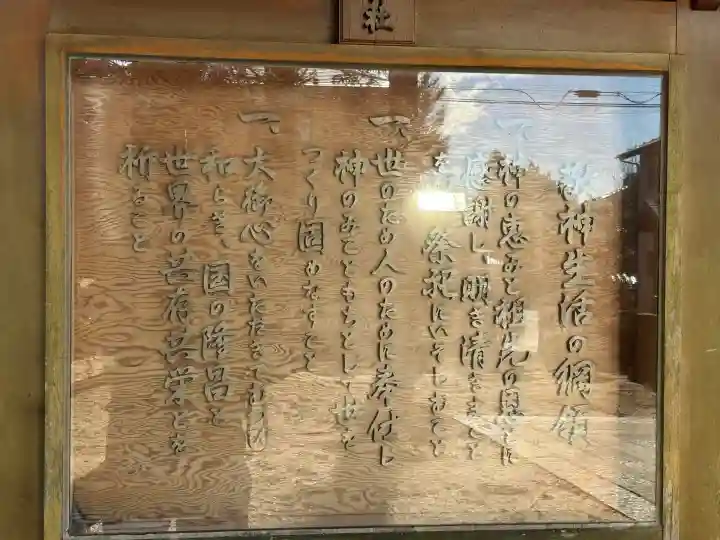 社
敬神生活の綱領
一、神の恵みと祖先の恩とに
感謝し、明き清きまことを
以て祭祀にいそしむこと
一、世のため人のために奉仕し
神のみこともちとして世を
つくり固めなすこと
一、大御心をいただきてむつび
和らぎ、国の隆昌と
世界の共存共栄とを
祈ること